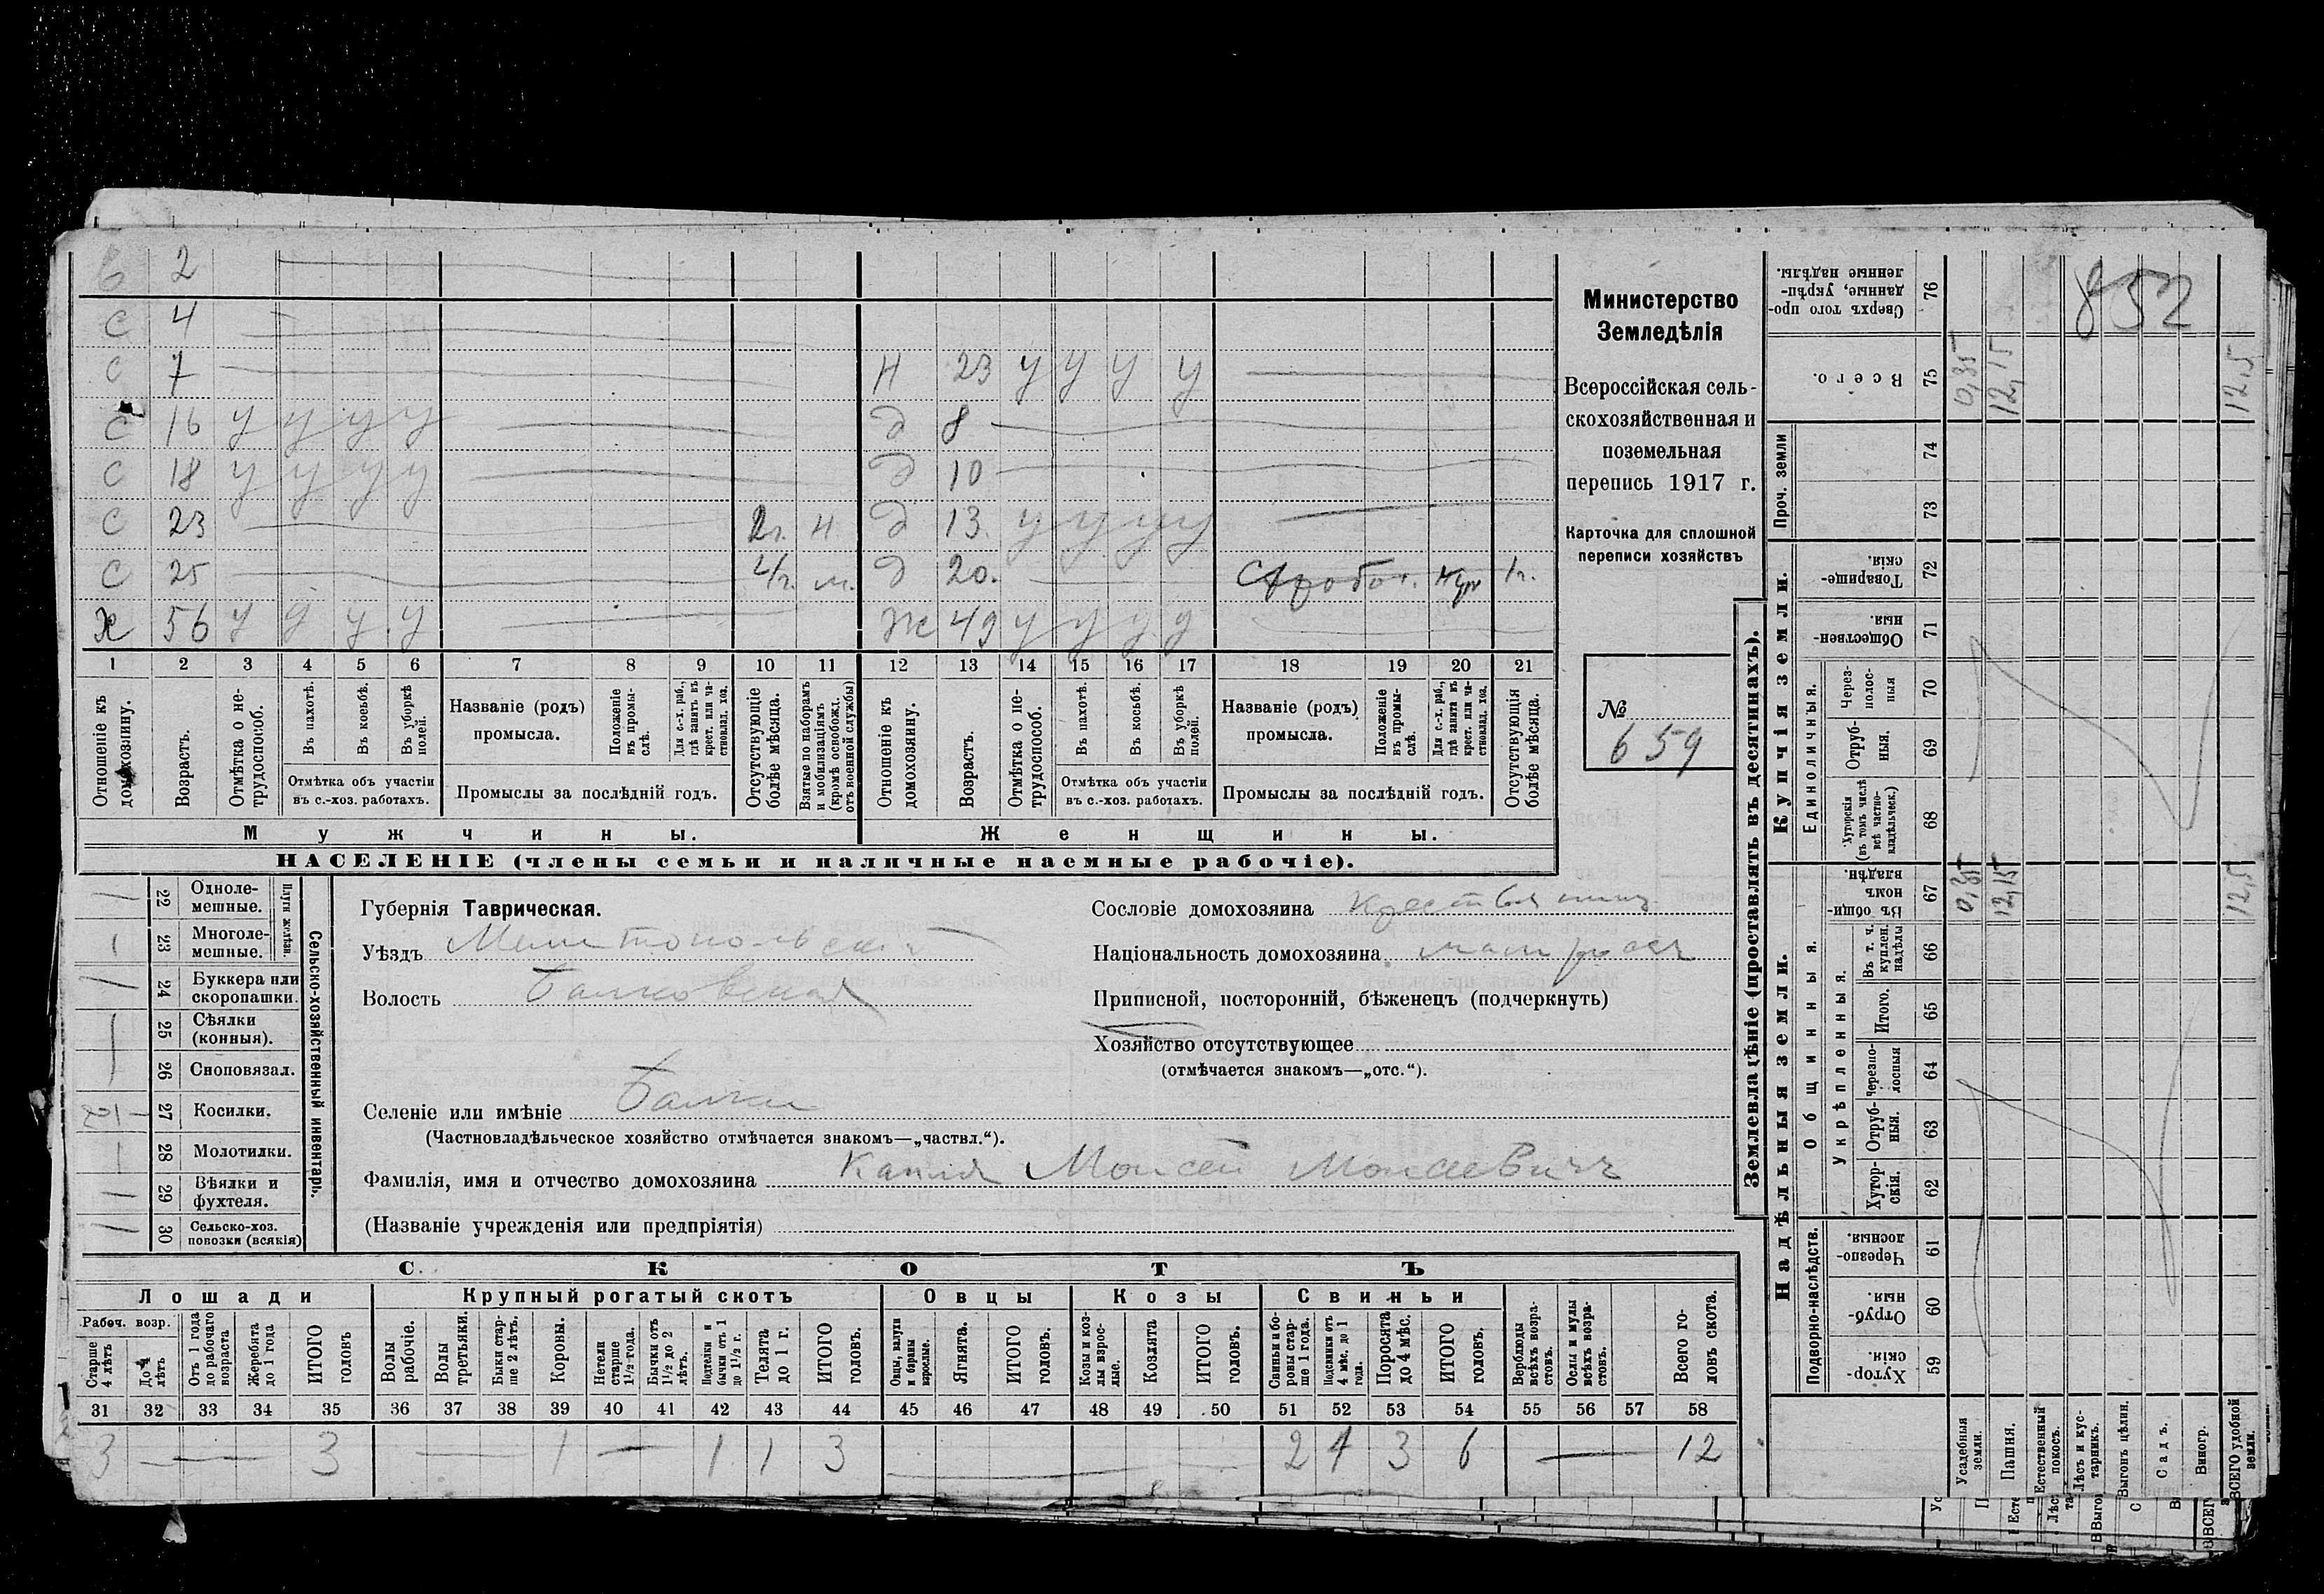 В 2
С 4
С 7 Н 23 у у у у
С 16 у у у у д 8
С 18 у у у у д 10
С 23 2г. н д 13. у у у у
С 25 м. д 20. 1г.
Х 56 у у у у Ж 49 у у у у
1 2 3 4 5 6 7 8 9 10 11 12 13 14 15 16 17 18 19 20 21
Отношеніе къ домохозяину.
Возрастъ.
Отмѣтка о не-трудоспособ.
Въ пахотѣ.
Въ косьбѣ.
Въ уборкѣ полей.
Отмѣтка объ участіи въ с.-хоз. работахъ.
Названіе (родъ) промысла.
Положеніе въ промы-слѣ.
Для с.-х. раб., гдѣ занатъ въ крест. или ча-стновлад. хоз.
Промыслы за послѣдній годъ.
Отсутствующіе болѣе мѣсяца.
Взятые по наборамъ и мобилизаціямъ (кромѣ освобожд. отъ военной службы)
Отношеніе къ домохозяину.
Возрастъ.
Отмѣтка о не-трудоспособ.
Въ пахотѣ.
Въ косьбѣ.
Въ уборкѣ полей.
Отмѣтка объ участіи въ с.-хоз. работахъ.
Названіе (родъ) промысла.
Положеніе въ промы-слѣ.
Для с.-х. раб., гдѣ занята въ крест. или ча-стновлад. хоз.
Промыслы за послѣдній годъ.
Отсутствующія болѣе мѣсяца.
Мужчины. Женщины.
НАСЕЛЕНІЕ (члены семьи и наличные наемные рабочіе).
Министерство
Земледѣлія
Всероссійская сель-
скохозяйственная и
поземельная
перепись 1917 г.
Карточка для сплошной
переписи хозяйствъ
№
659
22 Одноле-мешные.
23 Многоле-мешные.
Плуги желѣзн.
24 Буккера или скоропашки.
25 Сѣялки (конныя).
26 Сноповязал.
27 Косилки.
28 Молотилки.
29 Вѣялки и фухтеля.
30 Сельско-хоз. повозки (всякія)
Сельско-хозяйственный инвентарь.
Губернія Таврическая.
Уѣздъ Мелитопольскій
Волость Балковская
Селеніе или имѣніе Балки
(Частновладѣльческое хозяйство отмѣчается знакомъ—„частвл.“).
Фамилія, имя и отчество домохозяина Капля Моисей Моисеевичъ
(Названіе учрежденія или предпріятія)
Сословіе домохозяина крестьянинъ
Національность домохозяина малороссъ
Приписной, посторонній, бѣженецъ (подчеркнуть)
Хозяйство отсутствующее
(отмѣчается знакомъ—„отс.“).
СКОТЪ
Лошади Крупный рогатый скотъ Овцы Козы Свиньи
Рабоч. возр.
Старше 4 лѣтъ
До 4 лѣтъ
Отъ 1 года до рабочаго возраста
Жеребята до 1 года
ИТОГО головъ
Волы рабочіе.
Волы третьяки.
Быки стар-ше 2 лѣтъ.
Коровы.
Нетели старше 1 1/2 года.
Бычки отъ 1 1/2 до 2 лѣтъ.
Подтелки и бычки отъ 1 до 1 1/2 г.
Телята до 1 г.
ИТОГО головъ.
Овцы, валухи и бараны взрослые.
Ягнята.
ИТОГО головъ.
Козы и коз-лы взрос-лые.
Козлята
ИТОГО головъ.
Свиньи и бо-ровы стар-ше 1 года.
Подсвинки отъ 4 мѣс. до 1 года.
Поросята до 4 мѣс.
ИТОГО головъ.
Верблюды всѣхъ возра-стовъ.
Ослы и мулы всѣхъ возра-стовъ.
Всего го-ловъ скота.
31 32 33 34 35 36 37 38 39 40 41 42 43 44 45 46 47 48 49 50 51 52 53 54 55 56 57 58
3 — 3 — 1 — 1 1 3 2 1 3 6 — 12
Землевладѣніе (проставлять въ десятинахъ).
Надѣльныя земли. Купчія земли. Проч. земли
Подворно-наслѣдств.
Хутор-скія. 59
Отруб-ныя. 60
Черезпо-лосныя. 61
Общинныя.
Укрѣпленныя.
Хутор-скія. 62
Отруб-ныя. 63
Черезпо-лосныя 64
Итого. 65
Въ т. ч. куплен. надѣлы 66
Въ общи-номъ владѣн. 67
Единоличныя.
Хуторскія (въ томъ числѣ всѣ частно-владѣльческ.) 68
Отруб-ныя. 69
Через-полос-ныя 70
Обществен-ныя. 71
Товарище-скія. 72
73
74
Всего. 75
Сверхъ того про-данные, укрѣп-ленные надѣлы. 76
852
Усадебныя земли. 0,35 0,35
Пашня. 12,15 12,15
Естественный покосъ.
Лѣсъ и кус-тарникъ.
Выгонъ цѣлин.
Садъ.
Виногр.
ВСЕГО удобной земли. 12,5 12,5